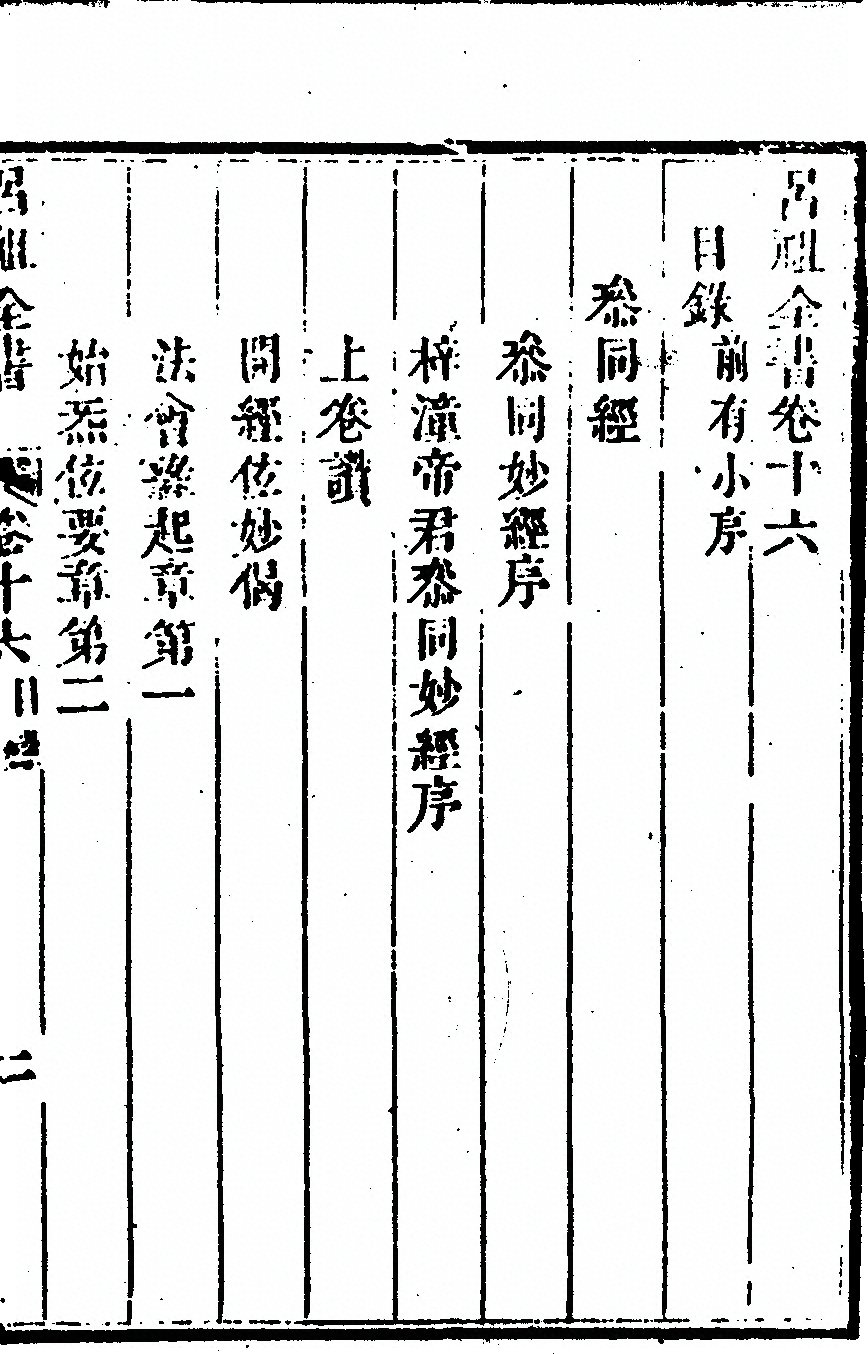 呂祖全書卷十六
目錄 前有小序
叅同經
叅同妙經序
梓潼帝君叅同妙經序
上卷讚
開經伭妙偈
法會緣起章第一
始炁伭要章第二
呂祖全書 卷十六 目錄 二